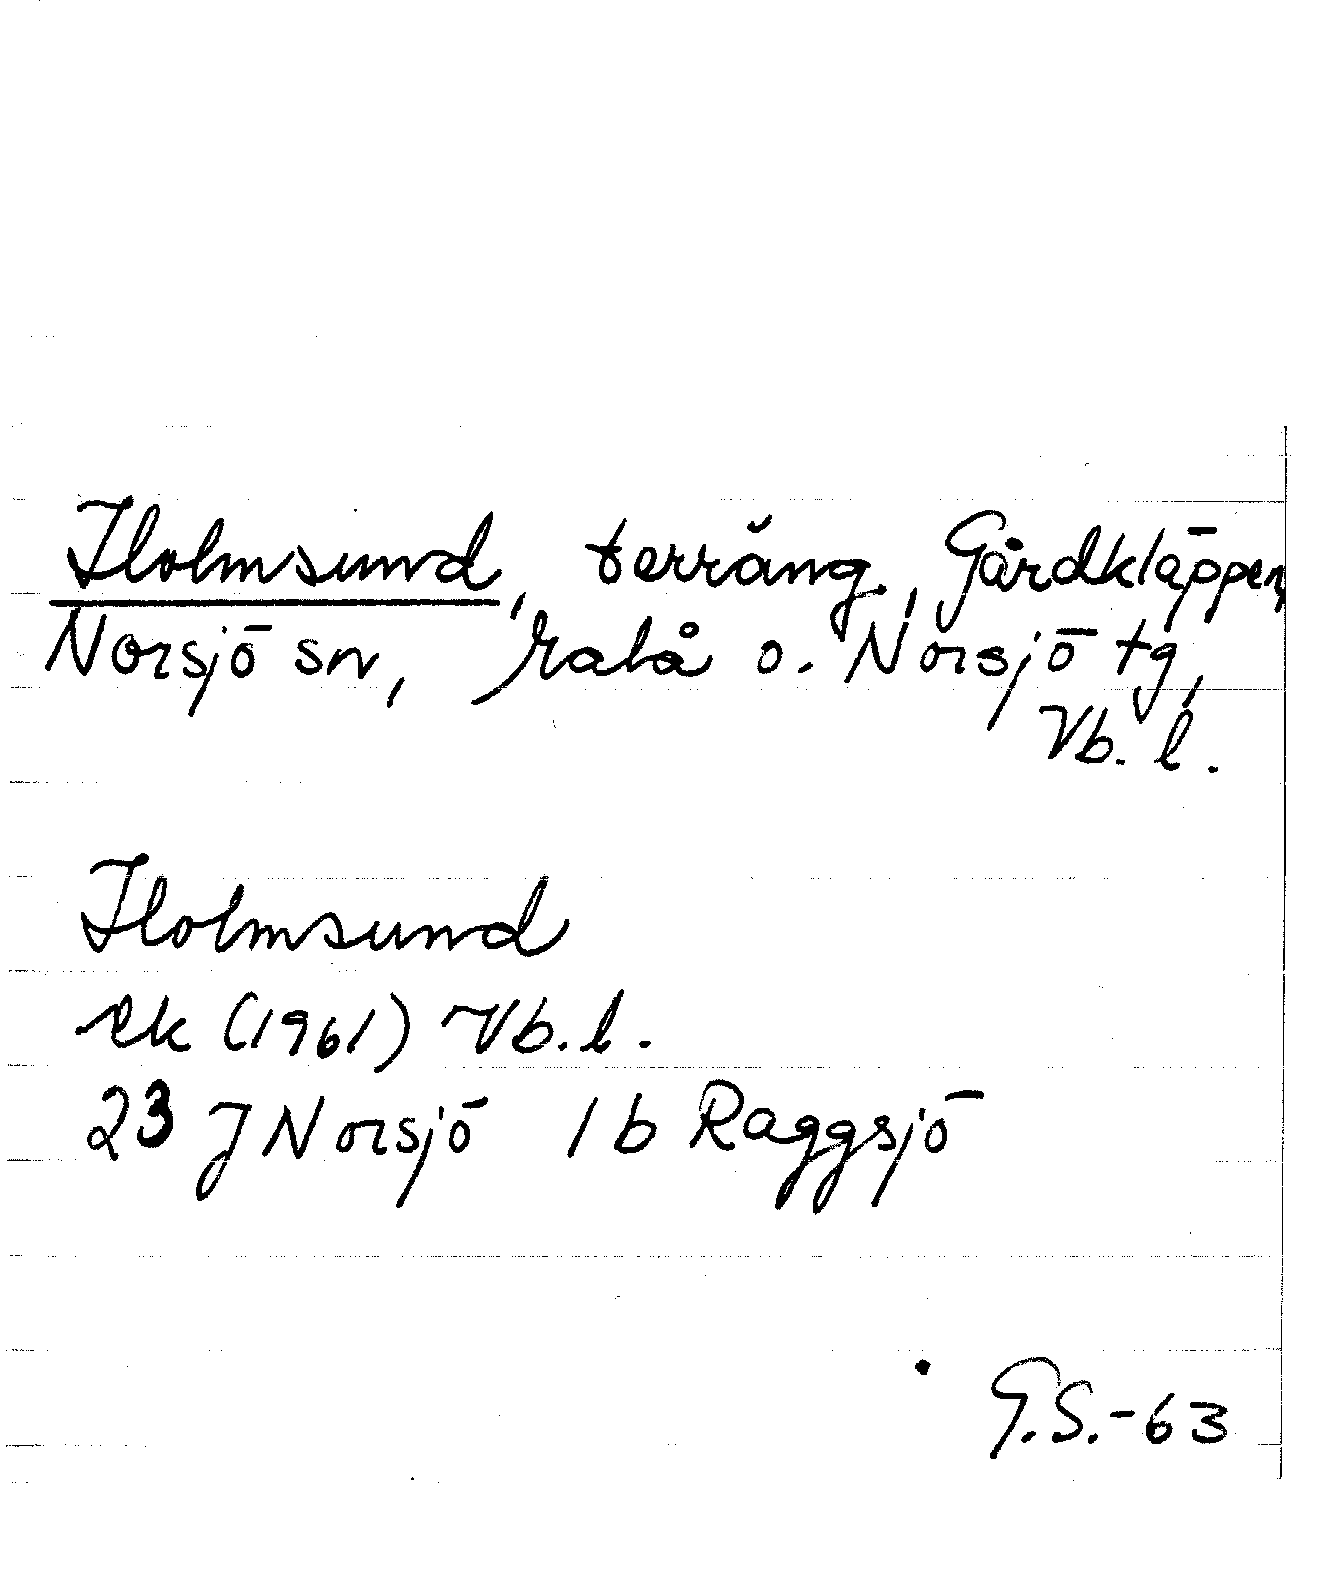 Holmsund, terräng, Gårdkläppen,
Norsjö sn, Malå o. Norsjö tg,
Vb. l.
Holmsund
ek (1961) Vb. l.
23 J Norsjö 1 b Raggsjö
G.S.-63